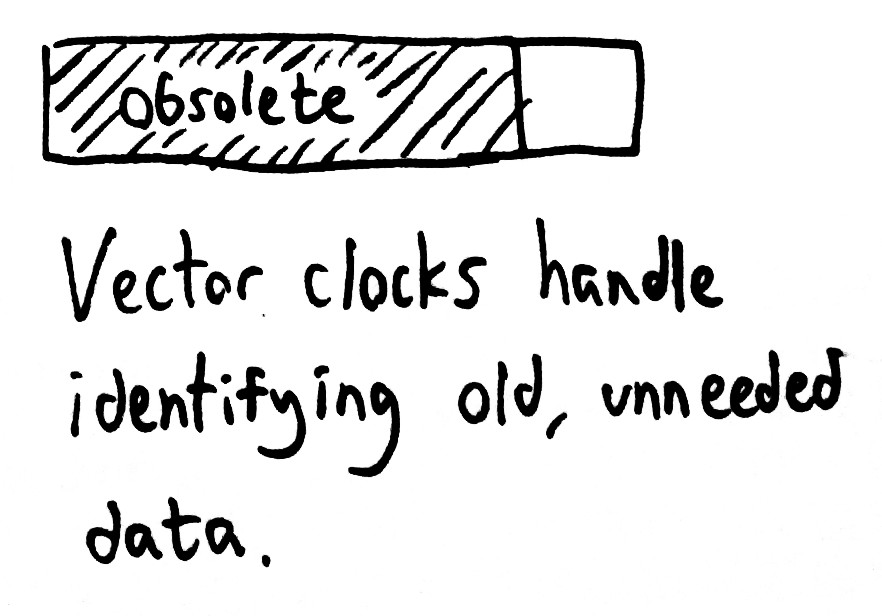 obsolete
Vector clocks handle
identifying old, unneeded
data.